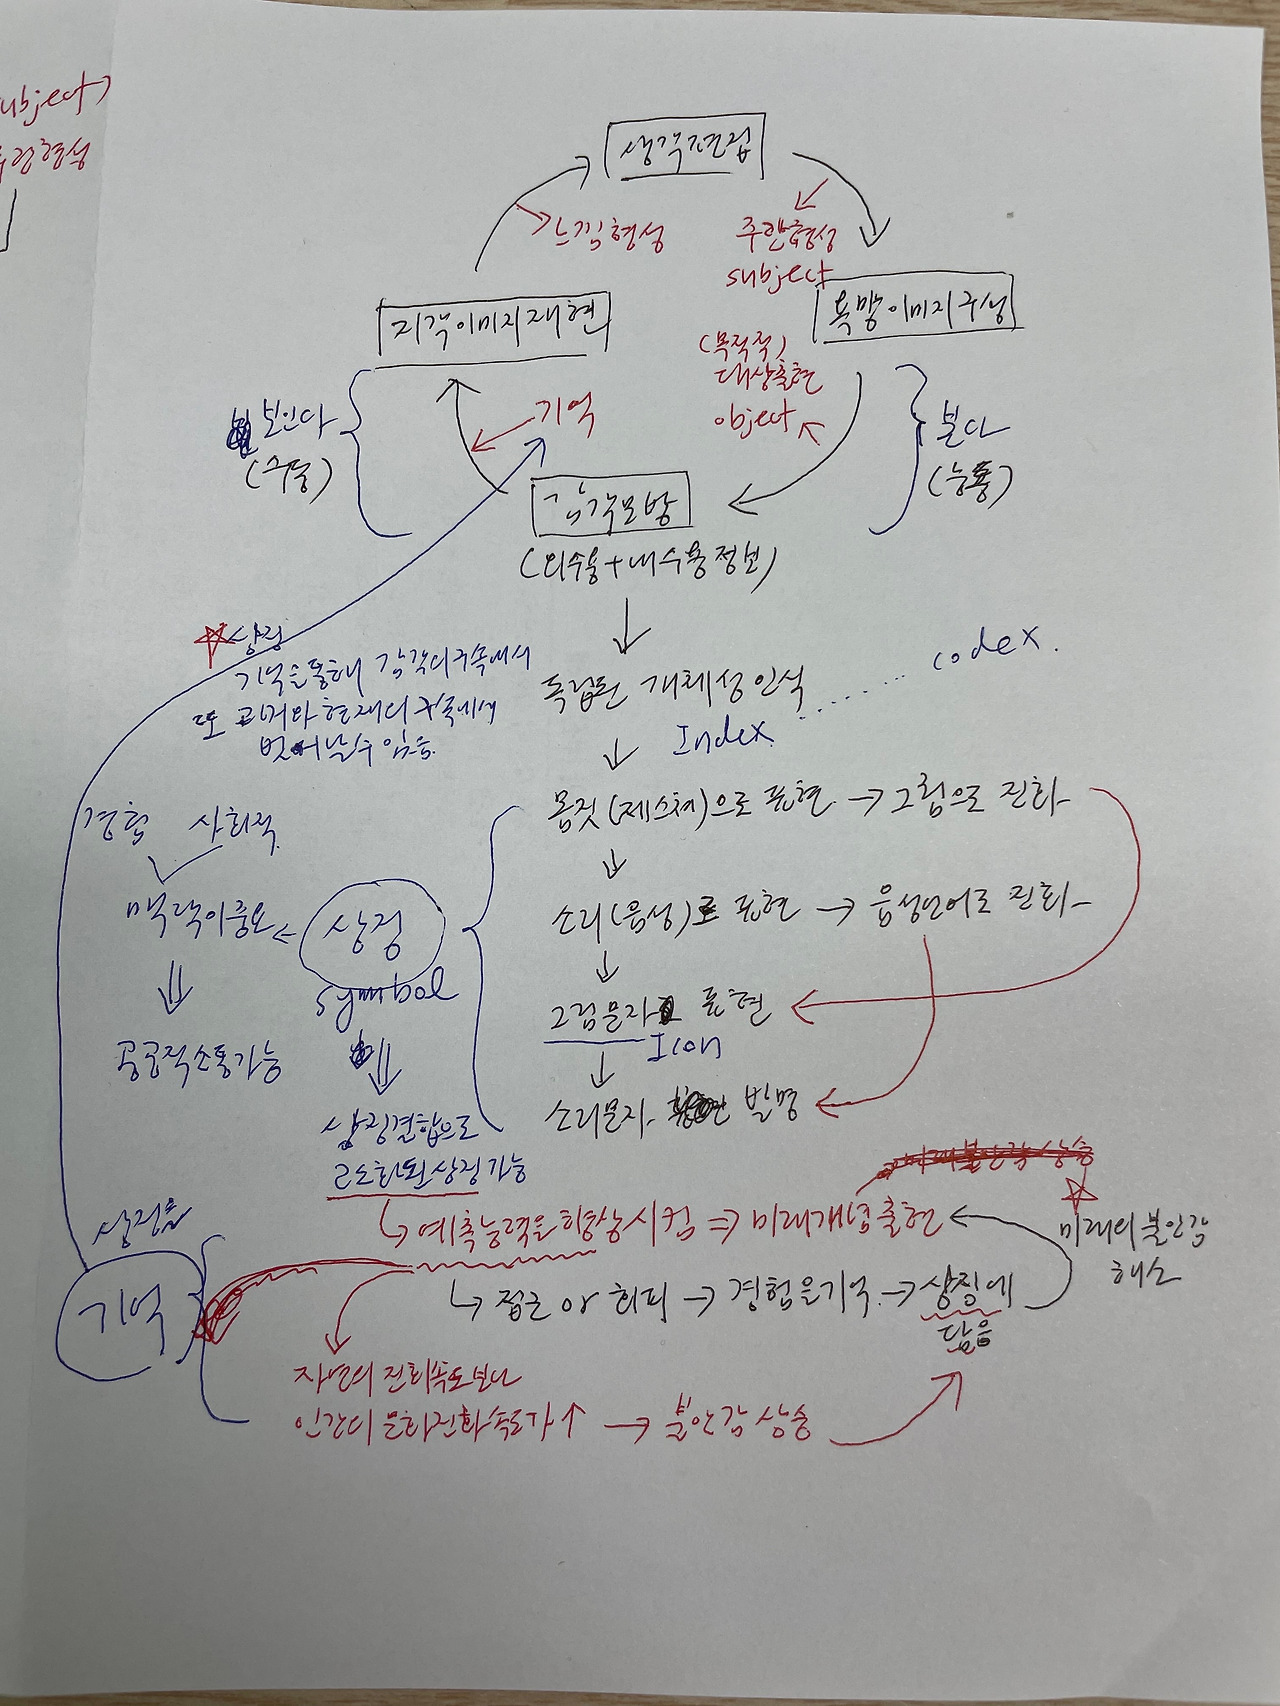 subject
형성
생각편집
느낌형성
주관형성
subject
지각이미지재현
욕망이미지구성
(목적적)
대상출현
object
기억
보인다
(수동)
본다
(능동)
감각모방
(외수용+내수용정보)
상징
기억을통해 감각의구속에서
또 과거와 현재의 구속에서
벗어날수있음
독립된 개체성인식 ......... codex.
Index
몸짓(제스처)으로 표현 → 그림으로 진화
소리(음성)로 표현 → 음성언어로 진화
그림문자로 표현
Icon
소리문자 발명
경험 사회적
맥락이중요
상징
symbol
공공적소통가능
상징결합으로
고도화된상징가능
↳ 예측능력을 향상시킴 ⇒ 미래개념출현
미래불안감상승
미래의불안감
해소
↳ 접근 or 회피 → 경험을기억 → 상징에
담음
상징을
기억
자연의 진화속도보다
인간의 문화진화속도가↑ → 불안감상승